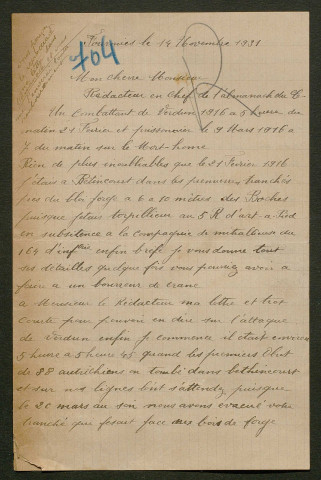 704
le 14 Novembre 1931
Mon chere Monsieur
Rédacteur en Chef de l'almanach du C.
Un Combattant de Verdun 1916 a 5 heure du
matin 21 Février et prisonnier le 9 Mars 1916 a
7 du matin sur le Mort-homme
Rien de plus inoubliables que le 21 Février 1916
j'étais a Béthincourt dans les premieres tranchés
pres du bla forge a 6 a 10 mètres des Boches
puisque j'etais torpilleur au 5 R d'art a Pied
en subsitence a la Compagnie de mitrailleuses du
164 d'inf enfin bréfe je vous donne tout
ses detailles quelque fois vous pouvaiz avoir a
faire a un bourreur de crane
a Monsieur le Rédacteur ma lettre et trot
Courte pour pouvoir en dire sur l'attaque
de Verdun enfin je commence il etait environ
5 heure a 5 heure 45 quand les premiers Obut
de 88 autrichiens on tombé dans bethincourt
et sur nos lignes bient s'attendez puisque
le 20 mars au soir nous avons evacué votre
tranché que fesait face aux bois de forge